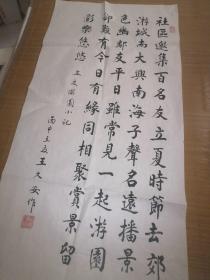 社區邀集百名友立夏時節去郊
游城南大興南海子聲名遠播景
色幽鄰友平日雖常見一起游園
却難有今日有緣同相聚賞景留
影樂悠悠 立夏游園小記
丙申立夏 王久安作